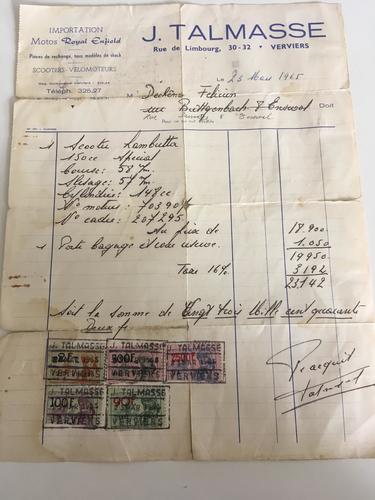 IMPORTATION
Motos Royal Enfield
Pièces de rechange, tous modèles de stock
SCOOTERS-VÉLOMOTEURS
Téléph. 325.27
J. TALMASSE
Rue de Limbourg, 30-32 • VERVIERS
Le 23 Mars 1965
M Deckers Félicien
rue Büttgenbach 8 Ensival Doit
1 Scooter Lambretta
150cc Spécial
Course: 58 m.
Alésage: 57 m.
Cylindrée: 148cc
N° moteur: 703901
N° cadre: 207295
Au prix de 18.900
1 Porte bagage et roue secours. 1.050
19950
Taxe 16% 3192
23142
Soit la somme de Vingt trois Mille cent quarante
Deux fr
J. TALMASSE J. TALMASSE J. TALMASSE
VERVIERS VERVIERS VERVIERS
J. TALMASSE J. TALMASSE
100F 90F
VERVIERS VERVIERS
Pr acquit
Talmasse